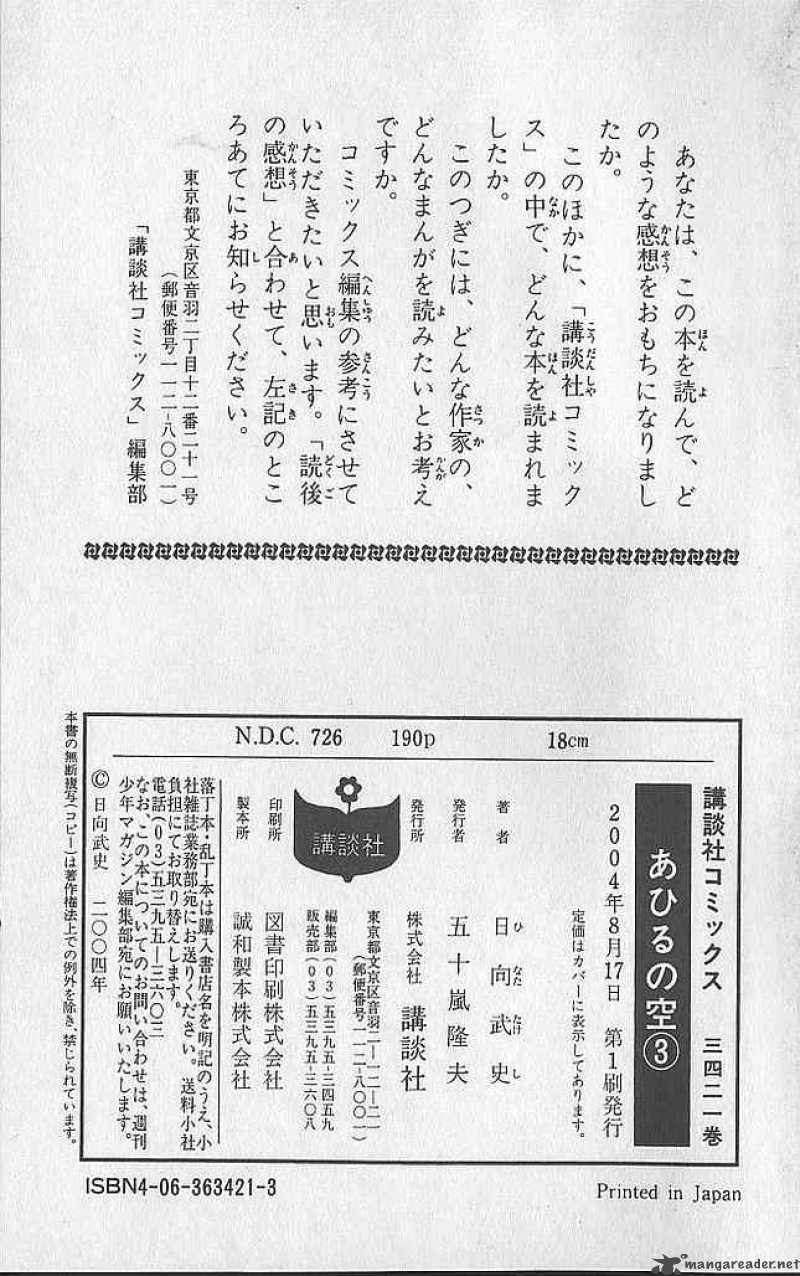 あなたは、この本を読んで、ど
のような感想をおもちになりまし
たか。
このほかに、「講談社コミック
ス」の中で、どんな本を読まれま
したか。
このつぎには、どんな作家の、
どんなまんがを読みたいとお考え
ですか。
コミックス編集の参考にさせて
いただきたいと思います。「読後
の感想」と合わせて、左記のとこ
ろあてにお知らせください。
東京都文京区音羽二丁目十二番二十一号
(郵便番号一一二-八〇〇一)
「講談社コミックス」編集部
N.D.C. 726 190p 18cm
講談社コミックス 三四二一巻
あひるの空③
2004年8月17日 第1刷発行
定価はカバーに表示してあります。
著者 日向武史
ひなたたけし
発行者 五十嵐隆夫
発行所 株式会社 講談社
東京都文京区音羽二-一二-二一
(郵便番号一一二-八〇〇一)
編集部(03)五三九五-三四五九
販売部(03)五三九五-三六〇八
講談社
印刷所 図書印刷株式会社
製本所 誠和製本株式会社
落丁本・乱丁本は購入書店名を明記のうえ、小
社雑誌業務部宛にお送りください。送料小社
負担にてお取り替えします。
電話(03)五三九五-三六〇三
なお、この本についてのお問い合わせは、週刊
少年マガジン編集部宛にお願いいたします。
©日向武史 二〇〇四年
本書の無断複写(コピー)は著作権法上での例外を除き、禁じられています。
ISBN4-06-363421-3
Printed in Japan
mangareader.net